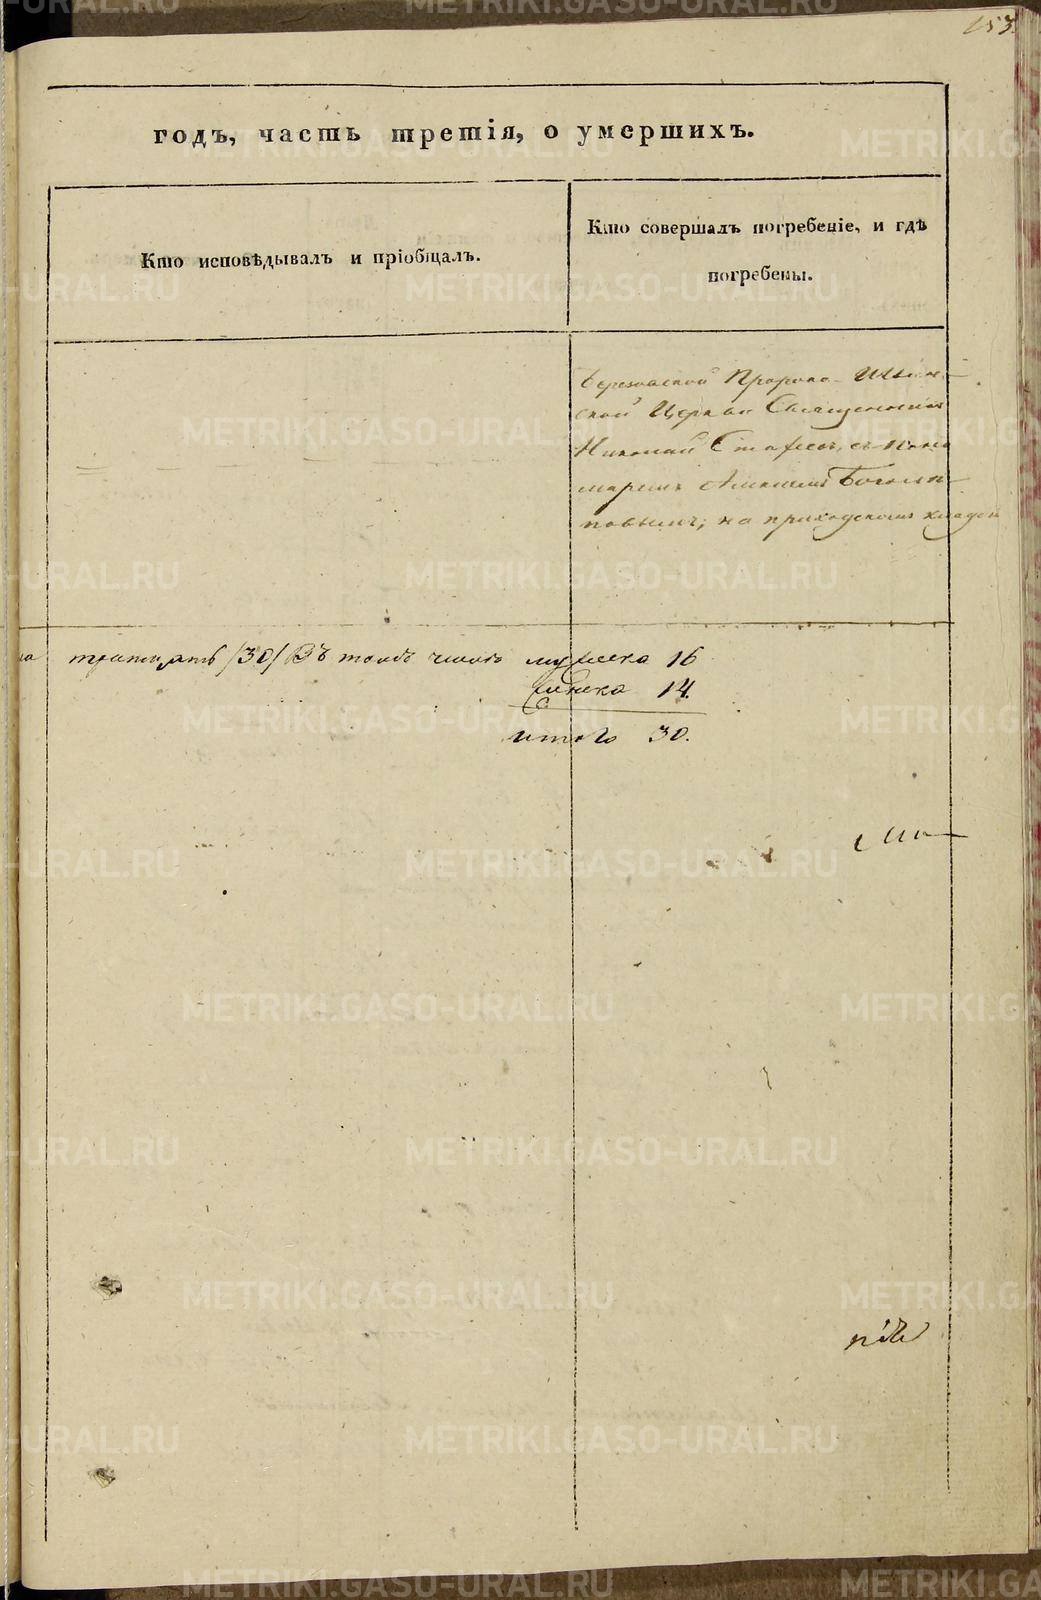 153.
годъ, часть третія, о умершихъ.
Кто исповѣдывалъ и пріобщалъ.
Кто совершалъ погребеніе, и гдѣ
погребены.
Березовской Пророко-Ильин-
ской Церкви Священникъ
Николай съ поно
маремъ
на приходскомъ кладби
тритцать /30/ Въ томъ числѣ мужеска 16
женска 14.
итого 30.
METRIKI.GASO-URAL.RU